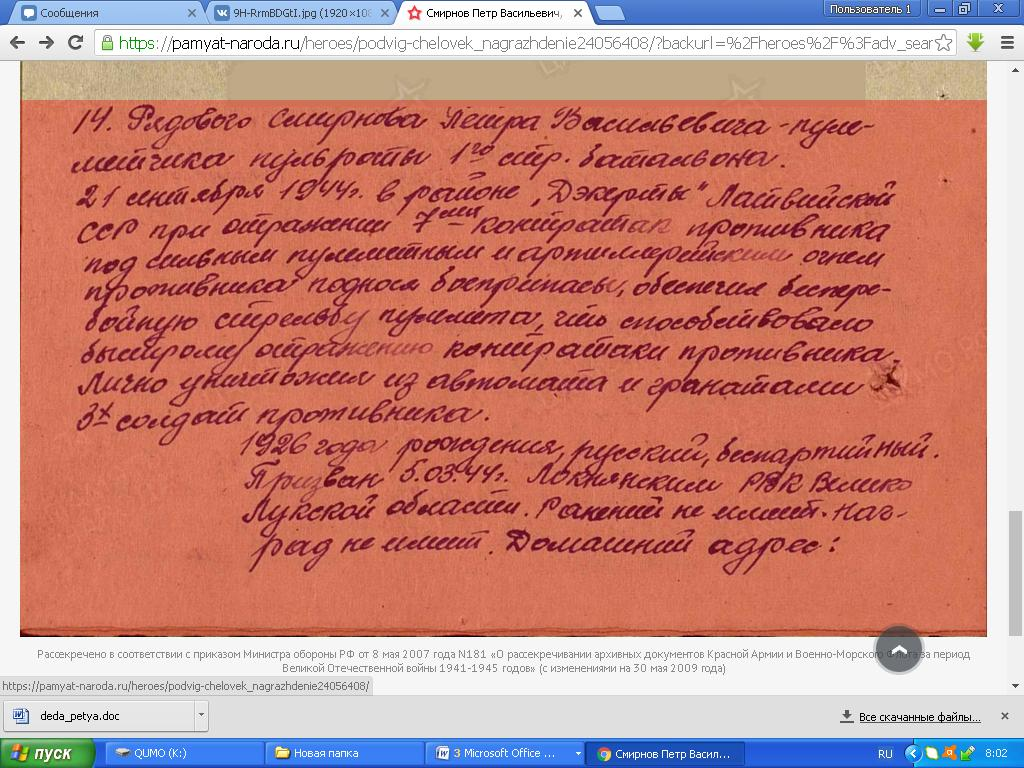 Сообщения
9H-RrmBDGtI.jpg (1920×108
Смирнов Петр Васильевич,
Пользователь 1
https://pamyat-naroda.ru/heroes/podvig-chelovek_nagrazhdenie24056408/?backurl=%2Fheroes%2F%3Fadv_sear
14. Рядового Смирнова Петра Васильевича - пуле-
метчика пульроты 1го стр. батальона.
21 сентября 1944г. в районе „Дэкерты" Латвийской
ССР при отражении 7ми контратак противника
под сильным пулеметным и артиллерийским огнем
противника подносл боеприпасы, обеспечил беспере-
бойную стрельбу пулемета, что способствовало
быстрому отражению контратаки противника.
Лично уничтожил из автомата и гранатами
3х солдат противника.
1926 года рождения, русский, беспартийный.
Призван 5.03.44г. Локнянским РВК Велико
Лукской области. Ранений не имеет. Наг-
рад не имеет. Домашний адрес:
Рассекречено в соответствии с приказом Министра обороны РФ от 8 мая 2007 года N181 «О рассекречивании архивных документов Красной Армии и Военно-Морского Флота за период
Великой Отечественной войны 1941-1945 годов» (с изменениями на 30 мая 2009 года)
https://pamyat-naroda.ru/heroes/podvig-chelovek_nagrazhdenie24056408/
deda_petya.doc
Все скачанные файлы...
пуск
QUMO (K:)
Новая папка
3 Microsoft Office ...
Смирнов Петр Васил...
RU
8:02